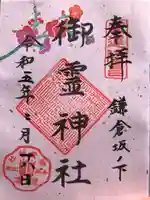 奉拝
鎌倉坂ノ下
御霊神社
令和五年二月十八日